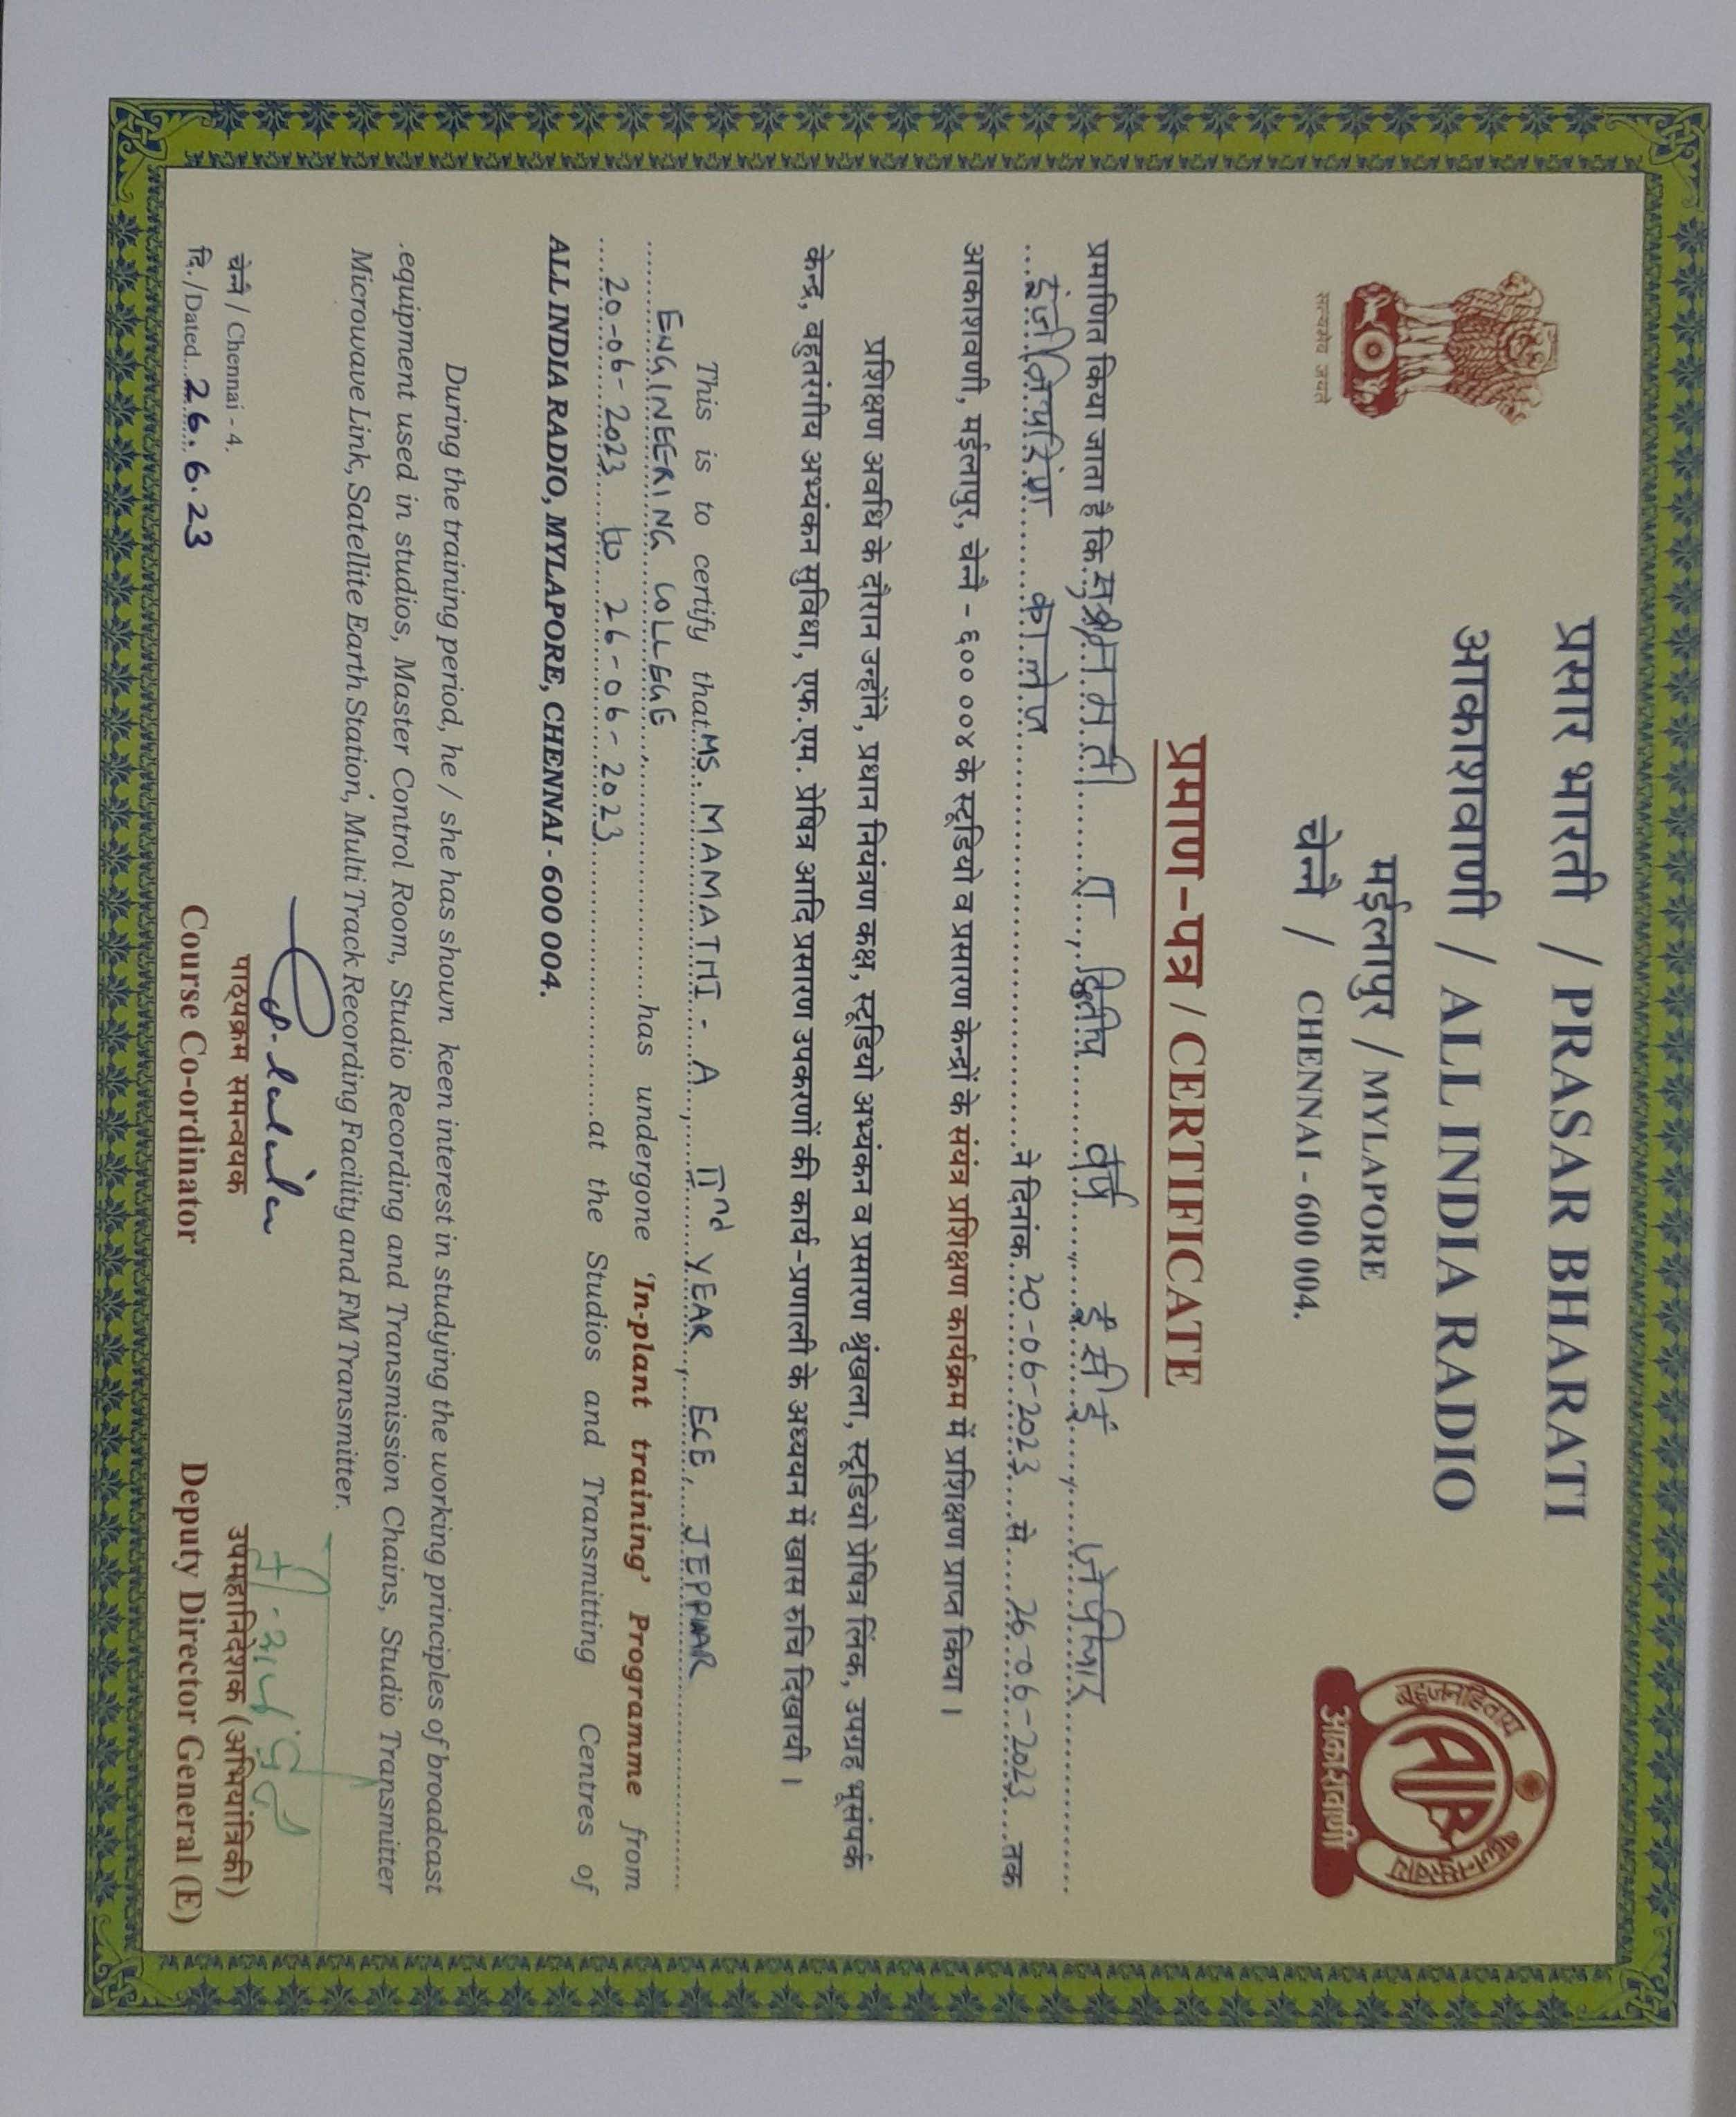 प्रसार भारती / PRASAR BHARATI
आकाशवाणी / ALL INDIA RADIO
मईलापुर / MYLAPORE
चेन्नै / CHENNAI - 600 004.
सत्यमेव जयते
बहुजनहिताय बहुजनसुखाय
AIR
आकाशवाणी
प्रमाण-पत्र / CERTIFICATE
प्रमाणित किया जाता है कि द्वितीय वर्ष, ई सी ई, जेपीआर
कालेज ने दिनांक 20-06-2023 से 26-06-2023 तक
आकाशवाणी, मईलापुर, चेन्नै - ६०० ००४ के स्टूडियो व प्रसारण केन्द्रों के संयंत्र प्रशिक्षण कार्यक्रम में प्रशिक्षण प्राप्त किया ।
प्रशिक्षण अवधि के दौरान उन्होंने, प्रधान नियंत्रण कक्ष, स्टूडियो अभ्यंकन व प्रसारण श्रृंखला, स्टूडियो प्रेषित्र लिंक, उपग्रह भूसंपर्क
केन्द्र, बहुतरंगीय अभ्यंकन सुविधा, एफ.एम. प्रेषित्र आदि प्रसारण उपकरणों की कार्य-प्रणाली के अध्ययन में खास रुचि दिखायी ।
This is to certify that MS. MAMATHI - A, IInd YEAR, ECE, JEPPIAR
ENGINEERING COLLEGE, has undergone 'In-plant training' Programme from
20-06-2023 to 26-06-2023 at the Studios and Transmitting Centres of
ALL INDIA RADIO, MYLAPORE, CHENNAI - 600 004.
During the training period, he / she has shown keen interest in studying the working principles of broadcast
equipment used in studios, Master Control Room, Studio Recording and Transmission Chains, Studio Transmitter
Microwave Link, Satellite Earth Station, Multi Track Recording Facility and FM Transmitter.
चेन्नै / Chennai - 4.
दि./Dated 26.6.23
पाठ्यक्रम समन्वयक
Course Co-ordinator
उपमहानिदेशक (अभियांत्रिकी)
Deputy Director General (E)